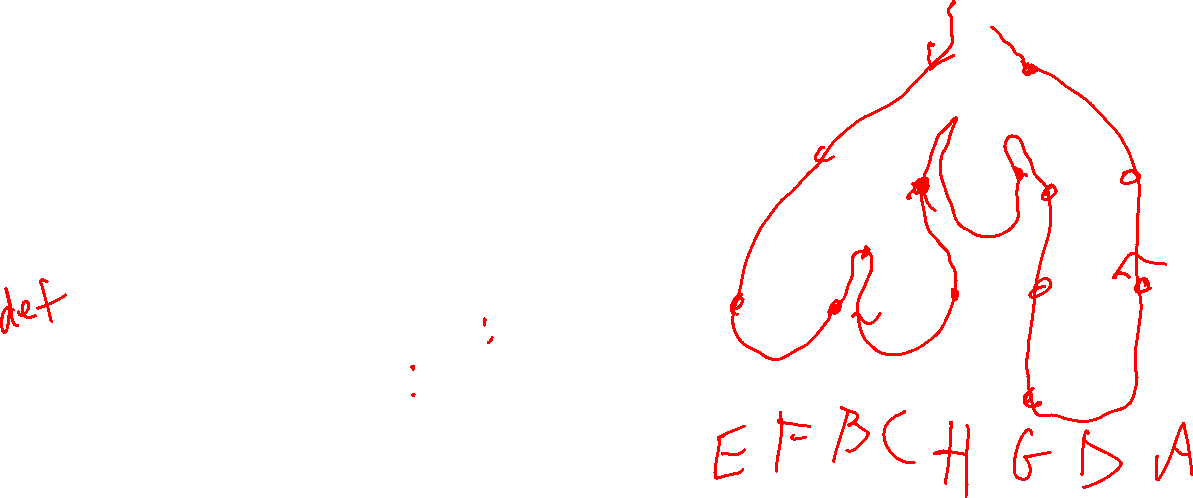 def
:
:
E F B C H G D A